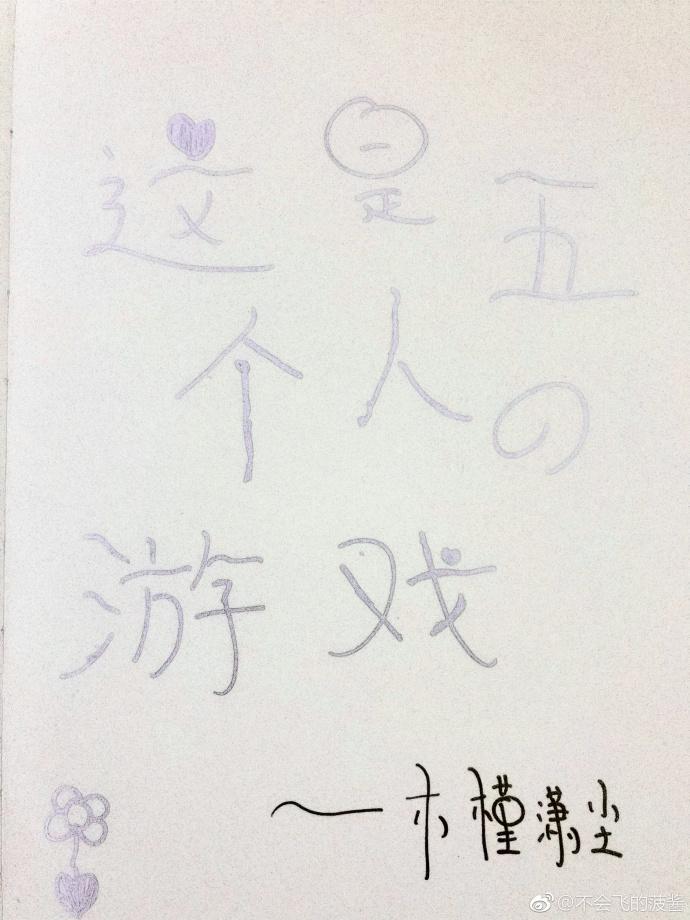 这是五
个人の
游戏
~木槿潇尘
@不会飞的菠酱